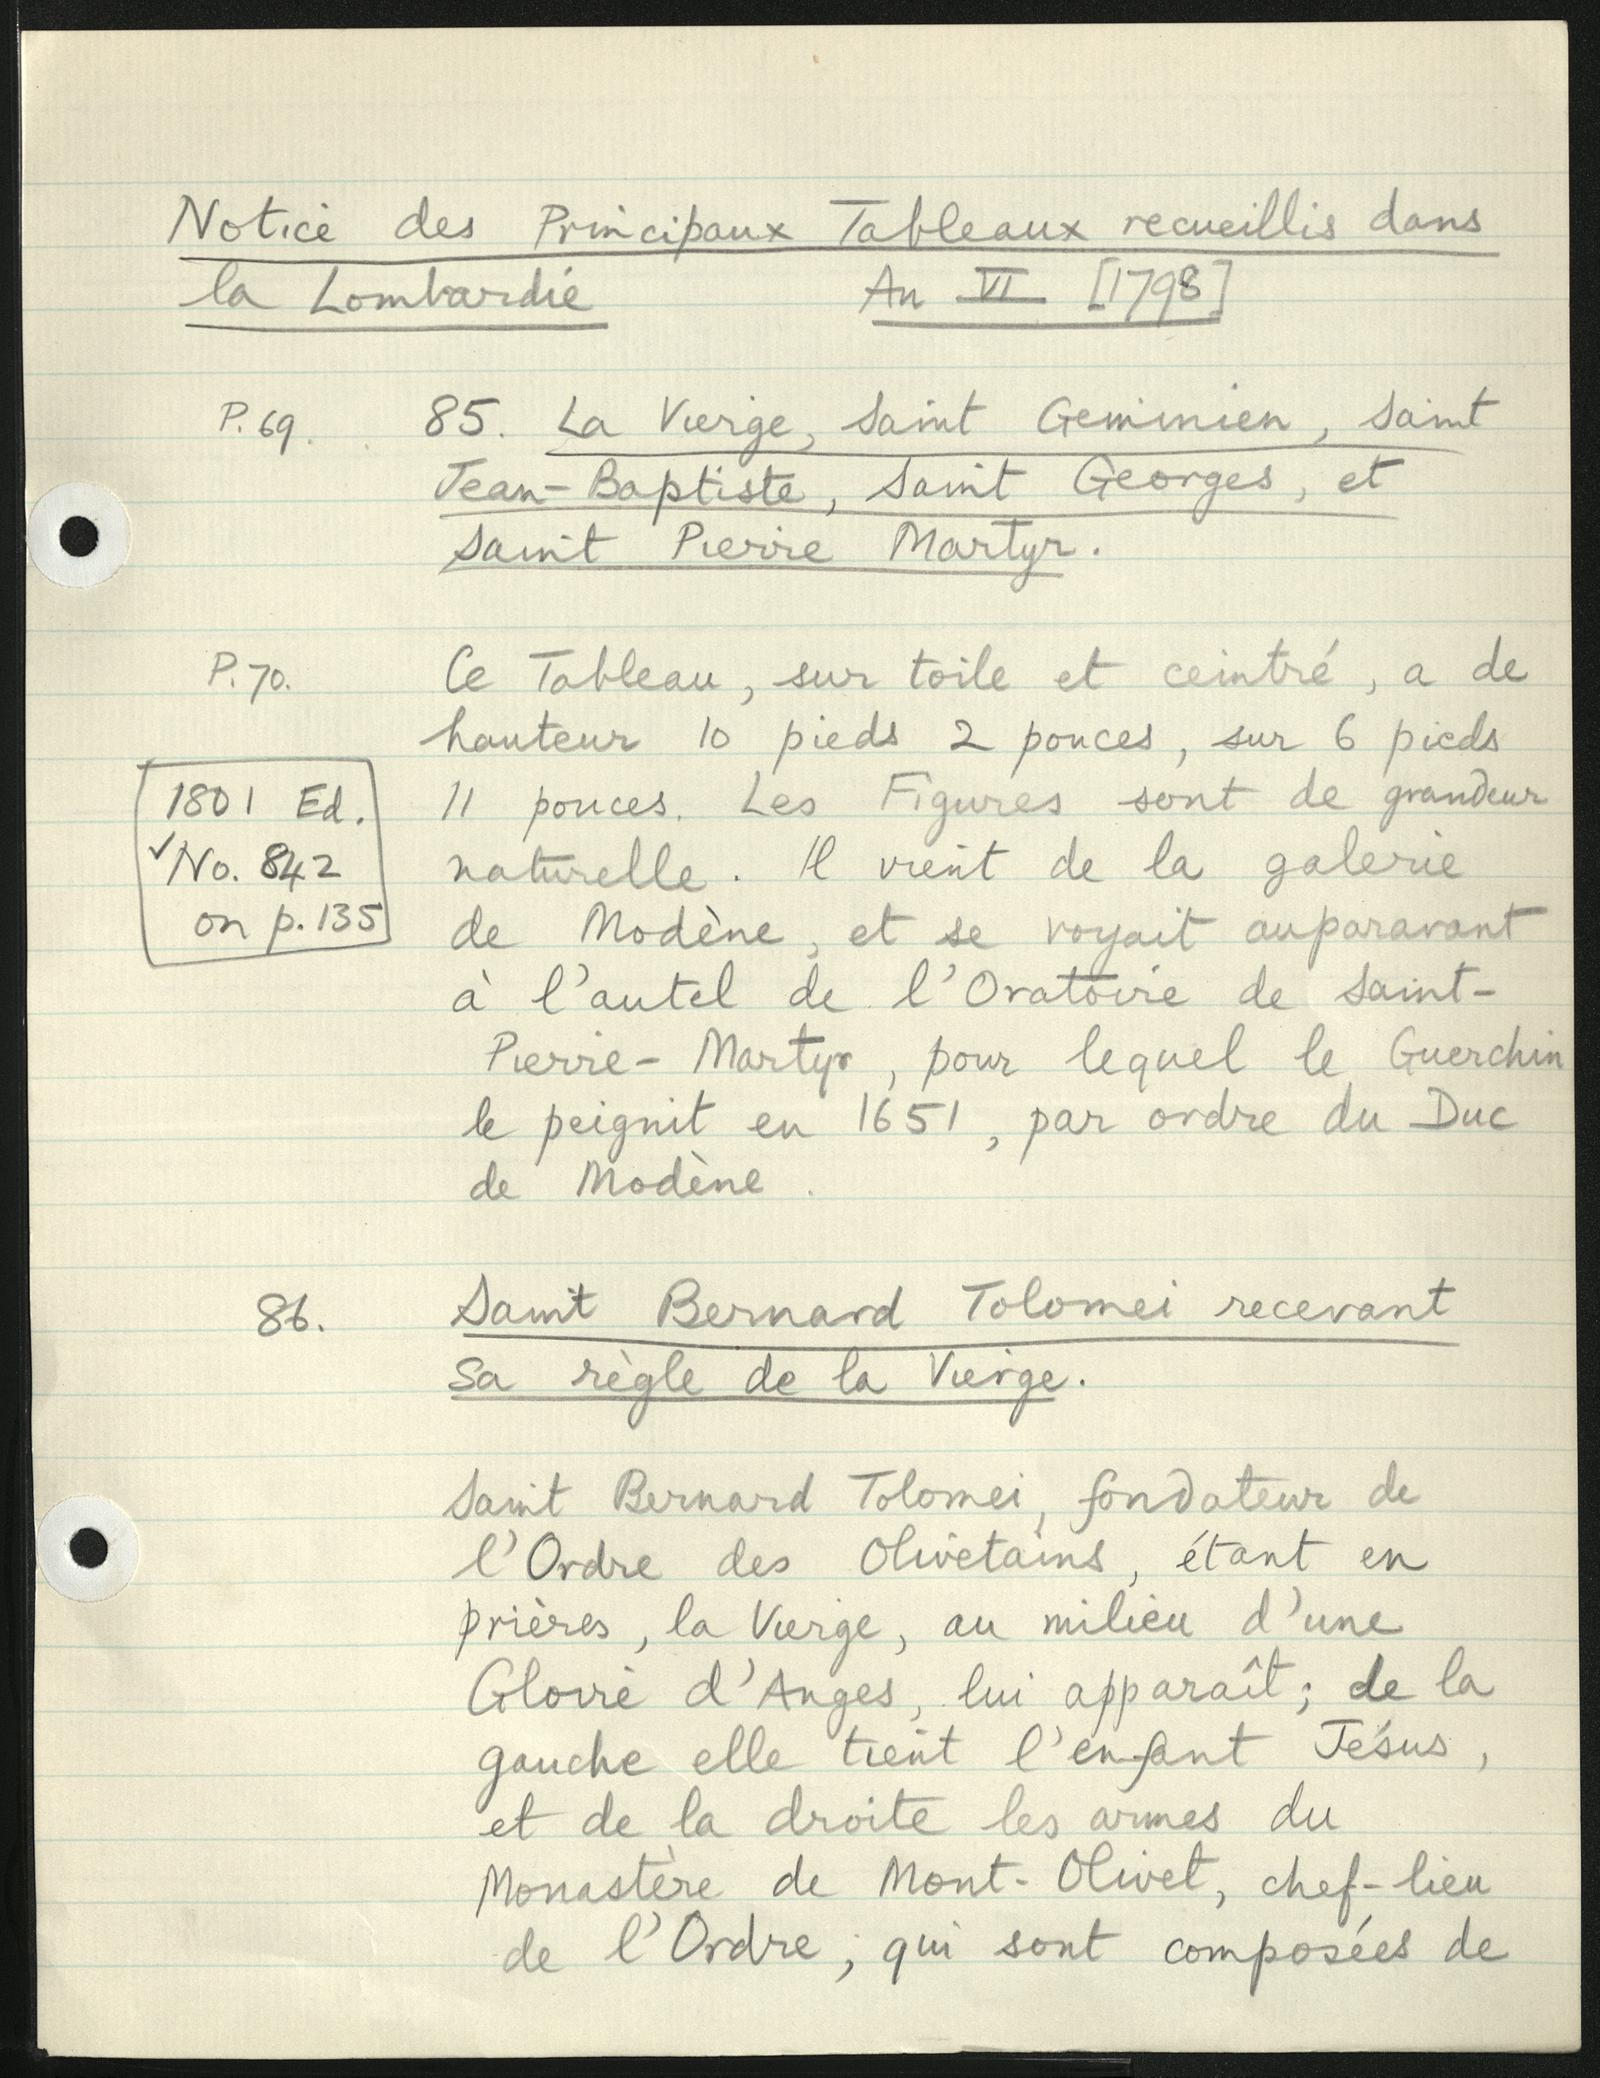 Notice des Principaux Tableaux recueillis dans
la Lombardie An VI [1798]
P. 69. 85. La Vierge, Saint Geminien, Saint
Jean-Baptiste, Saint Georges, et
Saint Pierre Martyr.
P. 70. Ce Tableau, sur toile et ceintré, a de
hauteur 10 pieds 2 pouces, sur 6 pieds
11 pouces. Les Figures sont de grandeur
naturelle. Il vient de la galerie
de Modène, et se voyait auparavant
à l'autel de l'Oratoire de Saint-
Pierre-Martyr, pour lequel le Guerchin
le peignit en 1651, par ordre du Duc
de Modène.
1801 Ed.
✓No. 842
on p. 135
86. Saint Bernard Tolomei recevant
sa règle de la Vierge.
Saint Bernard Tolomei, fondateur de
l'Ordre des Olivetains, étant en
prières, la Vierge, au milieu d'une
Gloire d'Anges, lui apparaît; de la
gauche elle tient l'enfant Jésus,
et de la droite les armes du
Monastère de Mont-Olivet, chef-lieu
de l'Ordre; qui sont composées de